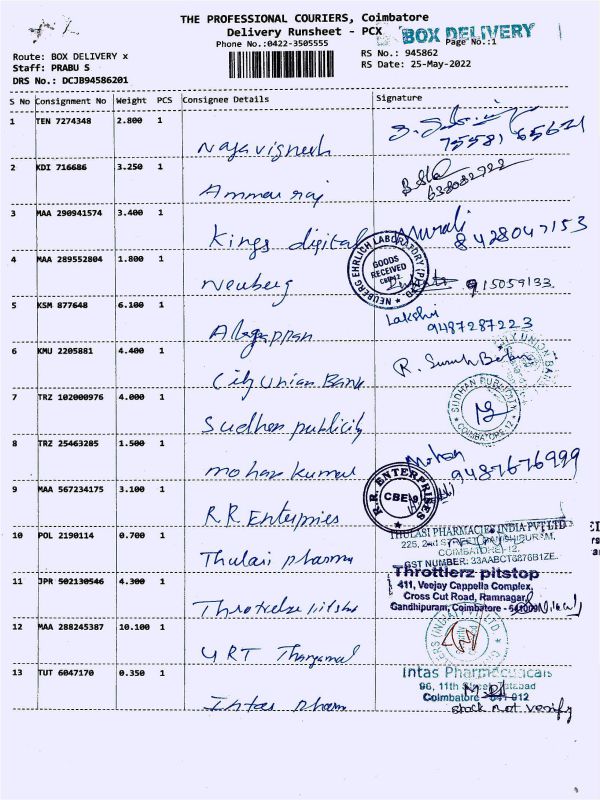 THE PROFESSIONAL COURIERS, Coimbatore
Delivery Runsheet - PCX
BOX DELIVERY
Phone No.:0422-3505555
Page No.:1
Route: BOX DELIVERY x
RS No.: 945862
Staff: PRABU S
RS Date: 25-May-2022
DRS No.: DCJB94586201
S No Consignment No Weight PCS Consignee Details Signature
1 TEN 7274348 2.800 1
75581 65621
Nagavignesh
2 KDI 716686 3.250 1
Ammau raj
3 MAA 290941574 3.400 1
Kings digital Murali
8428047153
4 MAA 289552804 1.800 1
NEUBERG EHRLICH LABORATORY (P) LTD
GOODS RECEIVED
Neuberg
915059133.
5 KSM 877648 6.100 1
Lakshi
9487287223
Alagappan
6 KMU 2205881 4.400 1
R. Suresh
City Union Bank
7 TRZ 102000976 4.000 1
SUDHAN PUBLICITA
COIMBATORE-12
Sudhan publicity
8 TRZ 25463285 1.500 1
Mohan
9487676999
mohan kumar
9 MAA 567234175 3.100 1
R.R. ENTERPRISES
CBE-9
R.R Enterpries
10 POL 2190114 0.700 1
THULASI PHARMACIES INDIA PVT LTD
225, 2nd
COIMBATORE-12.
GST NUMBER: 33AABCT6876B1ZE.
Thulasi pharma
11 JPR 502130546 4.300 1
Throttlerz pitstop
411, Veejay Cappella Complex,
Cross Cut Road, Ramnagar,
Gandhipuram, Coimbatore - 641009
12 MAA 288245387 10.100 1
YRT Thangamal
13 TUT 6047170 0.350 1
Intas Pharmaceuticals
96, 11th Street,
Coimbatore - 641 012
Intas pharm
stock not verify